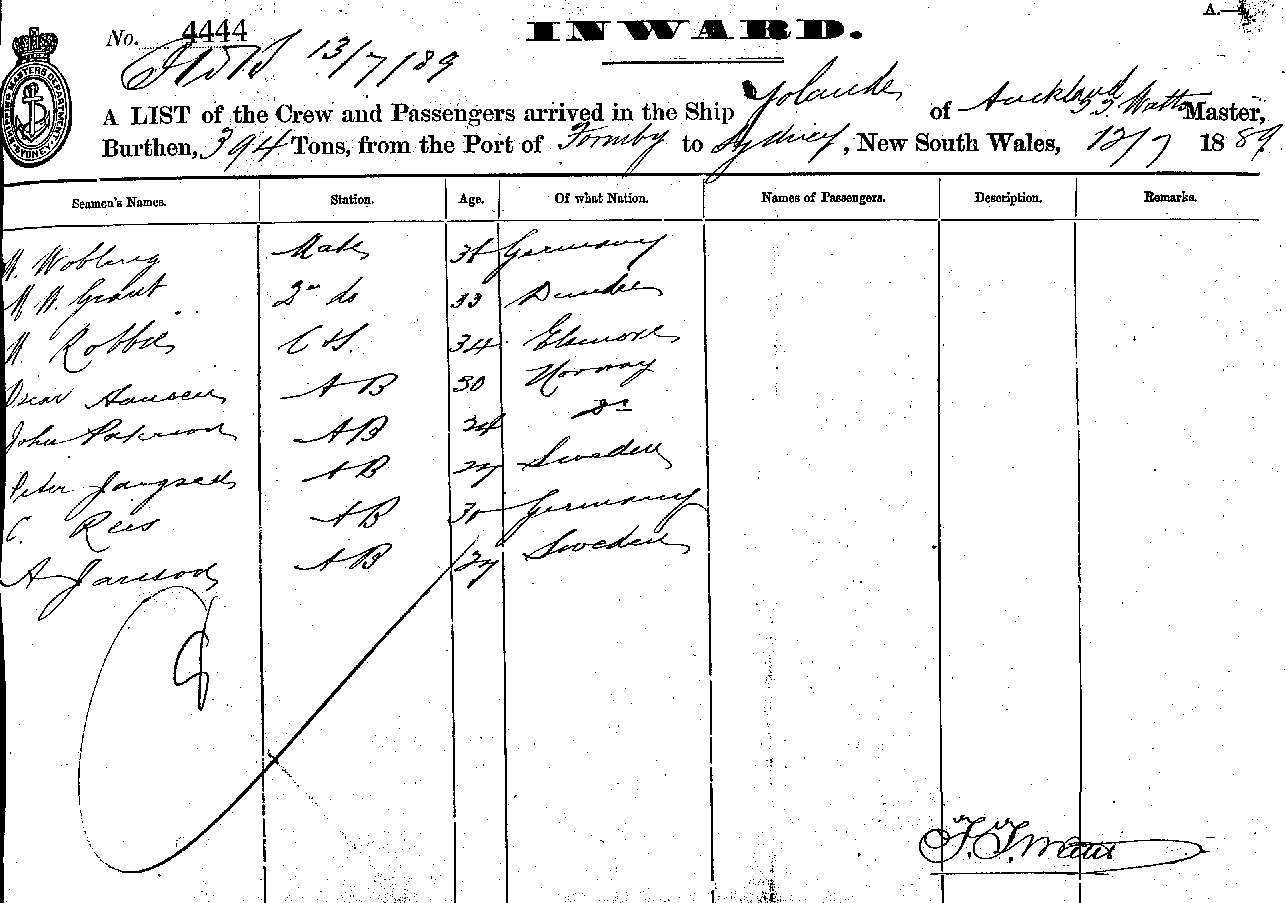 A.—
No. 4444
INWARD.
13/7/89
A LIST of the Crew and Passengers arrived in the Ship Yolande of Auckland Watts Master,
Burthen, 394 Tons, from the Port of Formby to Sydney, New South Wales, 12/7 1889
Seamen's Names. Station. Age. Of what Nation. Names of Passengers. Description. Remarks.
Mate Germany
Grant 2nd do 33 Dundee
Robbie 34 Elsinore
Oscar Hansen AB 30 Norway
John Paterson AB 24 do
Peter AB 27 Sweden
C. Rees AB 30 Germany
A AB 27 Sweden
8